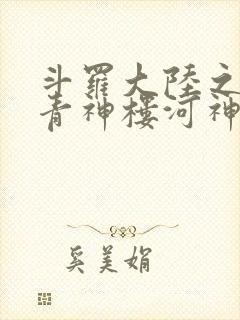 斗羅大陸之
青神樓河神
奚美娟